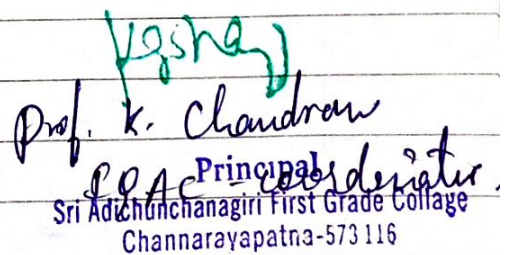 Prof. K. Chandran
IQAC - Coordinator.
Principal
Sri Adichunchanagiri First Grade Collage
Channarayapatna-573 116